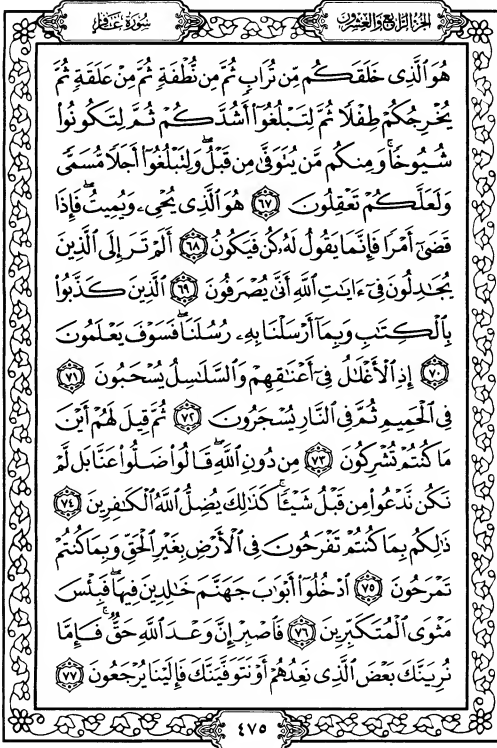 الجزء الرابع والعشرون سورة غافر
هُوَ ٱلَّذِى خَلَقَكُم مِّن تُرَابٍ ثُمَّ مِن نُّطْفَةٍ ثُمَّ مِنْ عَلَقَةٍ ثُمَّ
يُخْرِجُكُمْ طِفْلًا ثُمَّ لِتَبْلُغُوٓا۟ أَشُدَّكُمْ ثُمَّ لِتَكُونُوا۟
شُيُوخًا ۚ وَمِنكُم مَّن يُتَوَفَّىٰ مِن قَبْلُ ۖ وَلِتَبْلُغُوٓا۟ أَجَلًا مُّسَمًّى
وَلَعَلَّكُمْ تَعْقِلُونَ ٦٧ هُوَ ٱلَّذِى يُحْىِۦ وَيُمِيتُ ۖ فَإِذَا
قَضَىٰٓ أَمْرًا فَإِنَّمَا يَقُولُ لَهُۥ كُن فَيَكُونُ ٦٨ أَلَمْ تَرَ إِلَى ٱلَّذِينَ
يُجَٰدِلُونَ فِىٓ ءَايَٰتِ ٱللَّهِ أَنَّىٰ يُصْرَفُونَ ٦٩ ٱلَّذِينَ كَذَّبُوا۟
بِٱلْكِتَٰبِ وَبِمَآ أَرْسَلْنَا بِهِۦ رُسُلَنَا ۖ فَسَوْفَ يَعْلَمُونَ
٧٠ إِذِ ٱلْأَغْلَٰلُ فِىٓ أَعْنَٰقِهِمْ وَٱلسَّلَٰسِلُ يُسْحَبُونَ ٧١
فِى ٱلْحَمِيمِ ثُمَّ فِى ٱلنَّارِ يُسْجَرُونَ ٧٢ ثُمَّ قِيلَ لَهُمْ أَيْنَ
مَا كُنتُمْ تُشْرِكُونَ ٧٣ مِن دُونِ ٱللَّهِ ۖ قَالُوا۟ ضَلُّوا۟ عَنَّا بَل لَّمْ
نَكُن نَّدْعُوا۟ مِن قَبْلُ شَيْـًٔا ۚ كَذَٰلِكَ يُضِلُّ ٱللَّهُ ٱلْكَٰفِرِينَ ٧٤
ذَٰلِكُم بِمَا كُنتُمْ تَفْرَحُونَ فِى ٱلْأَرْضِ بِغَيْرِ ٱلْحَقِّ وَبِمَا كُنتُمْ
تَمْرَحُونَ ٧٥ ٱدْخُلُوٓا۟ أَبْوَٰبَ جَهَنَّمَ خَٰلِدِينَ فِيهَا ۖ فَبِئْسَ
مَثْوَى ٱلْمُتَكَبِّرِينَ ٧٦ فَٱصْبِرْ إِنَّ وَعْدَ ٱللَّهِ حَقٌّ ۚ فَإِمَّا
نُرِيَنَّكَ بَعْضَ ٱلَّذِى نَعِدُهُمْ أَوْ نَتَوَفَّيَنَّكَ فَإِلَيْنَا يُرْجَعُونَ ٧٧
٤٧٥